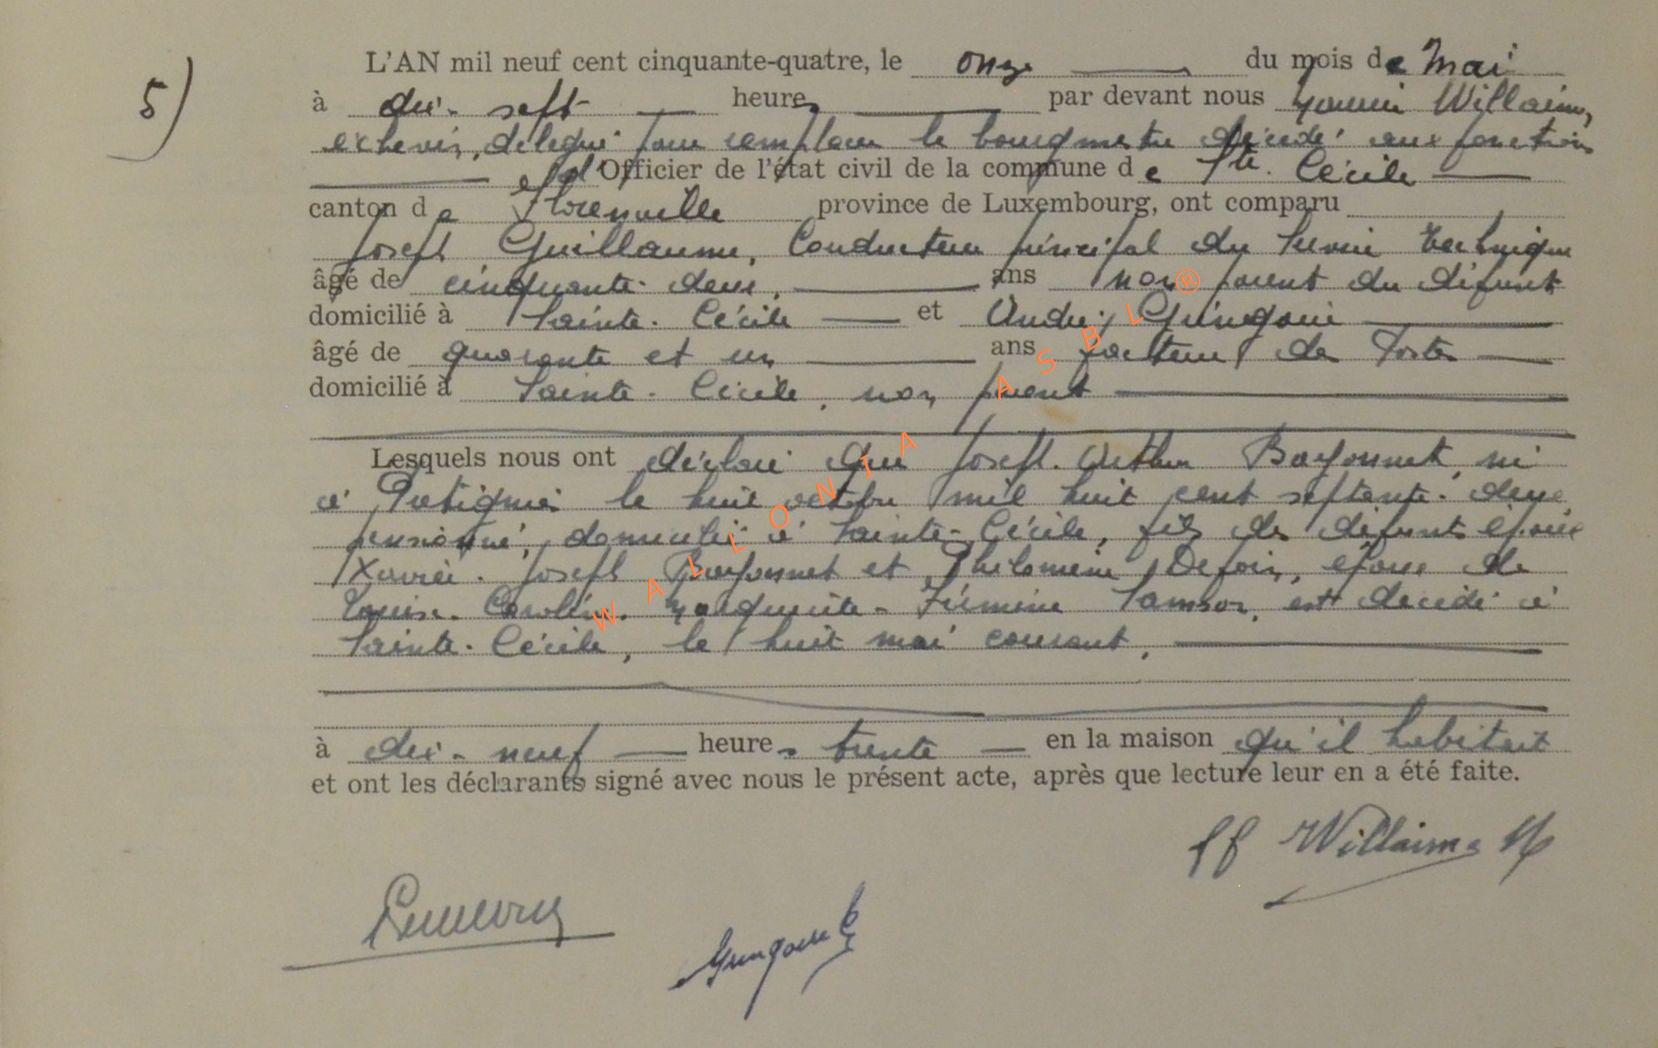 5)
L'AN mil neuf cent cinquante-quatre, le onze du mois de Mai
à dix-sept heures par devant nous Willaime,
échevin, délégué pour remplacer le bourgmestre décédé aux fonctions
d'Officier de l'état civil de la commune de Ste. Cécile
canton de Florenville province de Luxembourg, ont comparu
Joseph Guillaume, Conducteur principal du Service technique
âgé de cinquante-deux, ans non parent du défunt
domicilié à Sainte-Cécile et André Gringoire
âgé de quarante et un ans facteur des Postes
domicilié à Sainte-Cécile, non parent
Lesquels nous ont déclaré que Joseph-Arthur Bayonnet, né
à le huit octobre mil huit cent septante-deux
pensionné, domicilié à Sainte-Cécile, fils des défunts époux
Xavier-Joseph Bayonnet et Philomène, époux de
Louise-Caroline-Marguerite-Firmine Samson, est décédé à
Sainte-Cécile, le huit mai courant,
à dix-neuf heures trente en la maison qu'il habitait
et ont les déclarants signé avec nous le présent acte, après que lecture leur en a été faite.
ff Willaime
Gringoire
WALLONIA ASBL ®